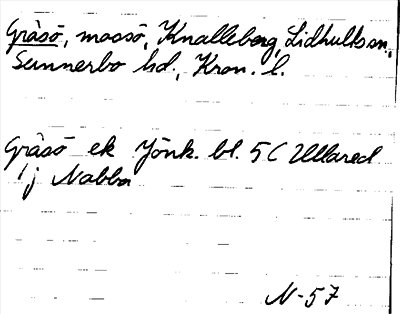 Gråsö, mossö, Knalleberg, Lidhults sn,
Sunnerbo hd., Kron. l.
Gråsö ek Jönk. bl. 5 C Ullared
1 j Nabba
N-57